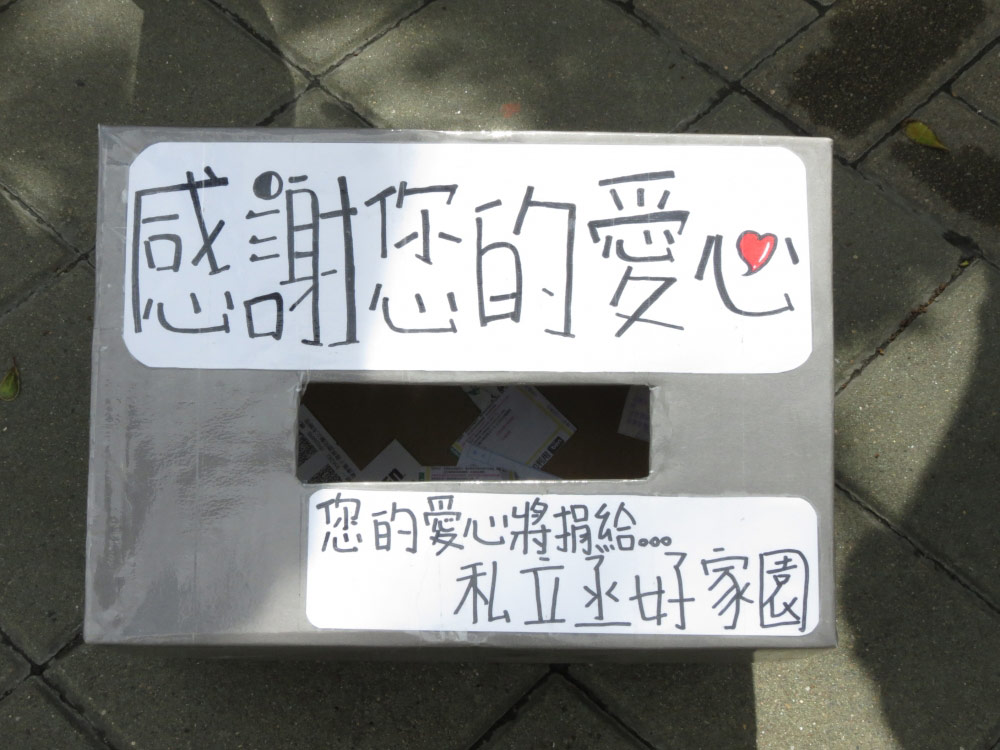 感謝您的愛心
您的愛心將捐給...
私立丞好家園